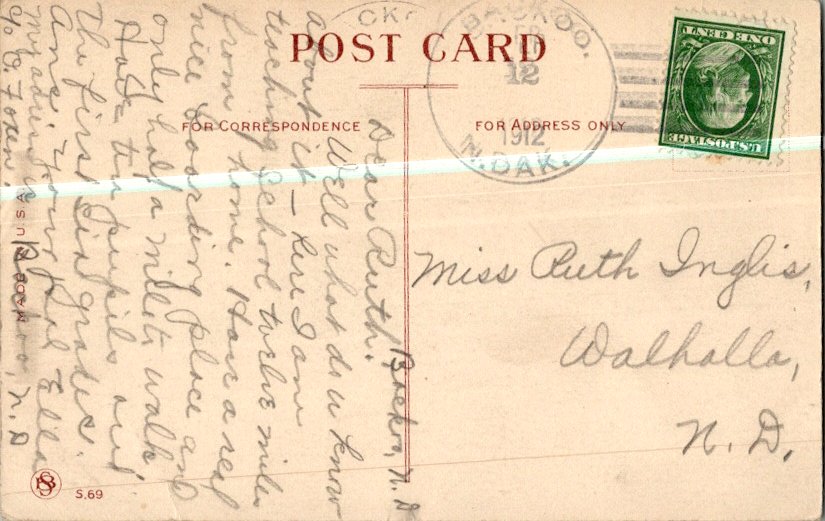 POST CARD
FOR CORRESPONDENCE
FOR ADDRESS ONLY
BACKOO.
12
1912
N. DAK.
U.S. POSTAGE
ONE CENT
Backoo, N. D
Dear Ruth.
Well what do u know
about it - here I am
teaching school twelve miles
from home. Have a real
nice boarding place and
only half a mile to walk
Have ten pupils and
the first six grades.
Ans. Your pal Ella
Backoo, N. D
Miss Ruth Inglis,
Walhalla,
N. D.
MADE IN U.S.A.
S.69